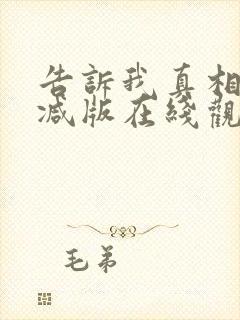 告訴我真相
減版在綫觀
毛弟